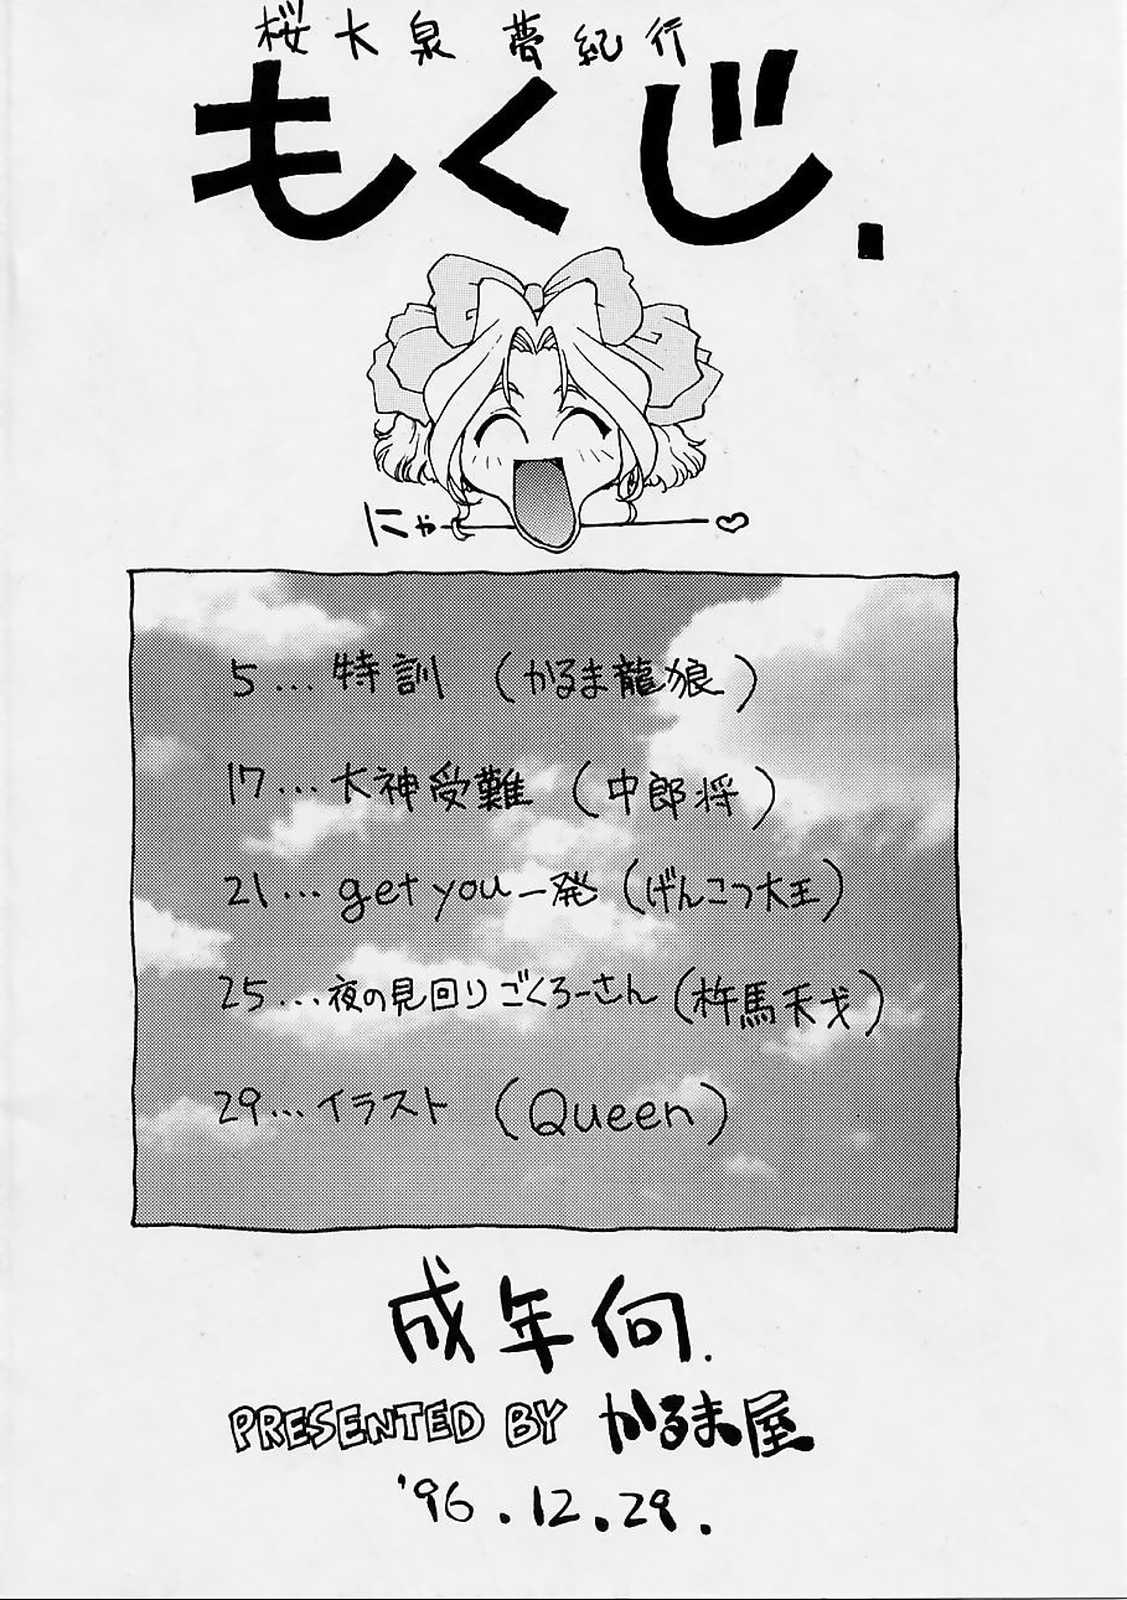 桜大泉 夢紀行
もくじ.
にゃー♡
5...特訓 (かるま龍狼)
17...大神受難 (中郎将)
21...get you一発 (げんこつ大王)
25...夜の見回りごくろーさん (杵馬天戈)
29...イラスト (Queen)
成年向.
PRESENTED BY かるま屋
'96.12.29.